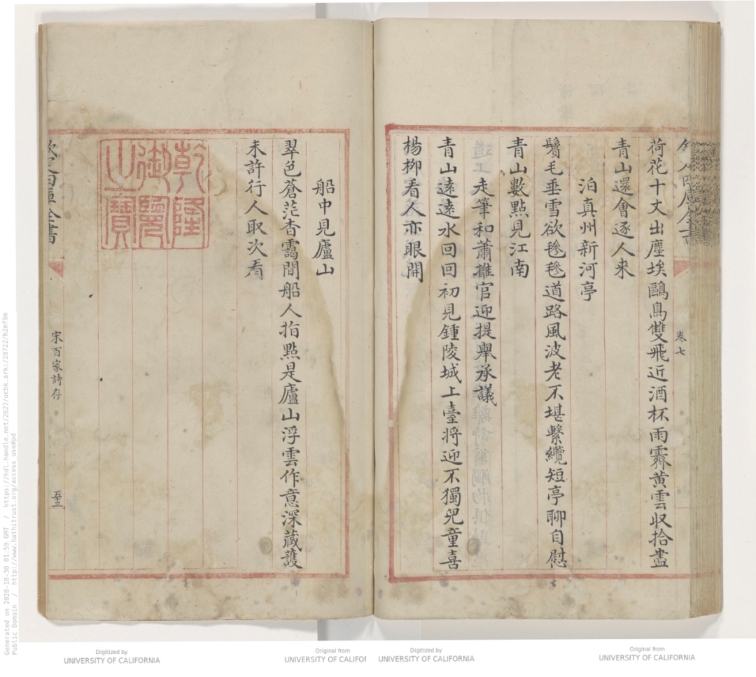 荷花十丈出塵埃鷗鳥雙飛近酒杯雨霽黃雲収拾盡
青山還會逐人來
泊真州新河亭
鬢毛垂雪欲毿毿道路風波老不堪繫纜短亭聊自慰
青山數點見江南
走筆和蕭推官迎提舉承議
青山遠遠水回回初見鍾陵城上臺將迎不獨兒童喜
楊柳看人亦眼開
卷七
船中見廬山
翠色蒼茫杳靄間船人指點是廬山浮雲作意深藏護
未許行人取次看
乾隆御覽之寶
宋百家詩存
Generated on 2020-10-30 01:59 GMT
Public Domain
Digitized by
UNIVERSITY OF CALIFORNIA
Original from
UNIVERSITY OF CALIFOR
Digitized by
UNIVERSITY OF CALIFORNIA
Original from
UNIVERSITY OF CALIFORNIA